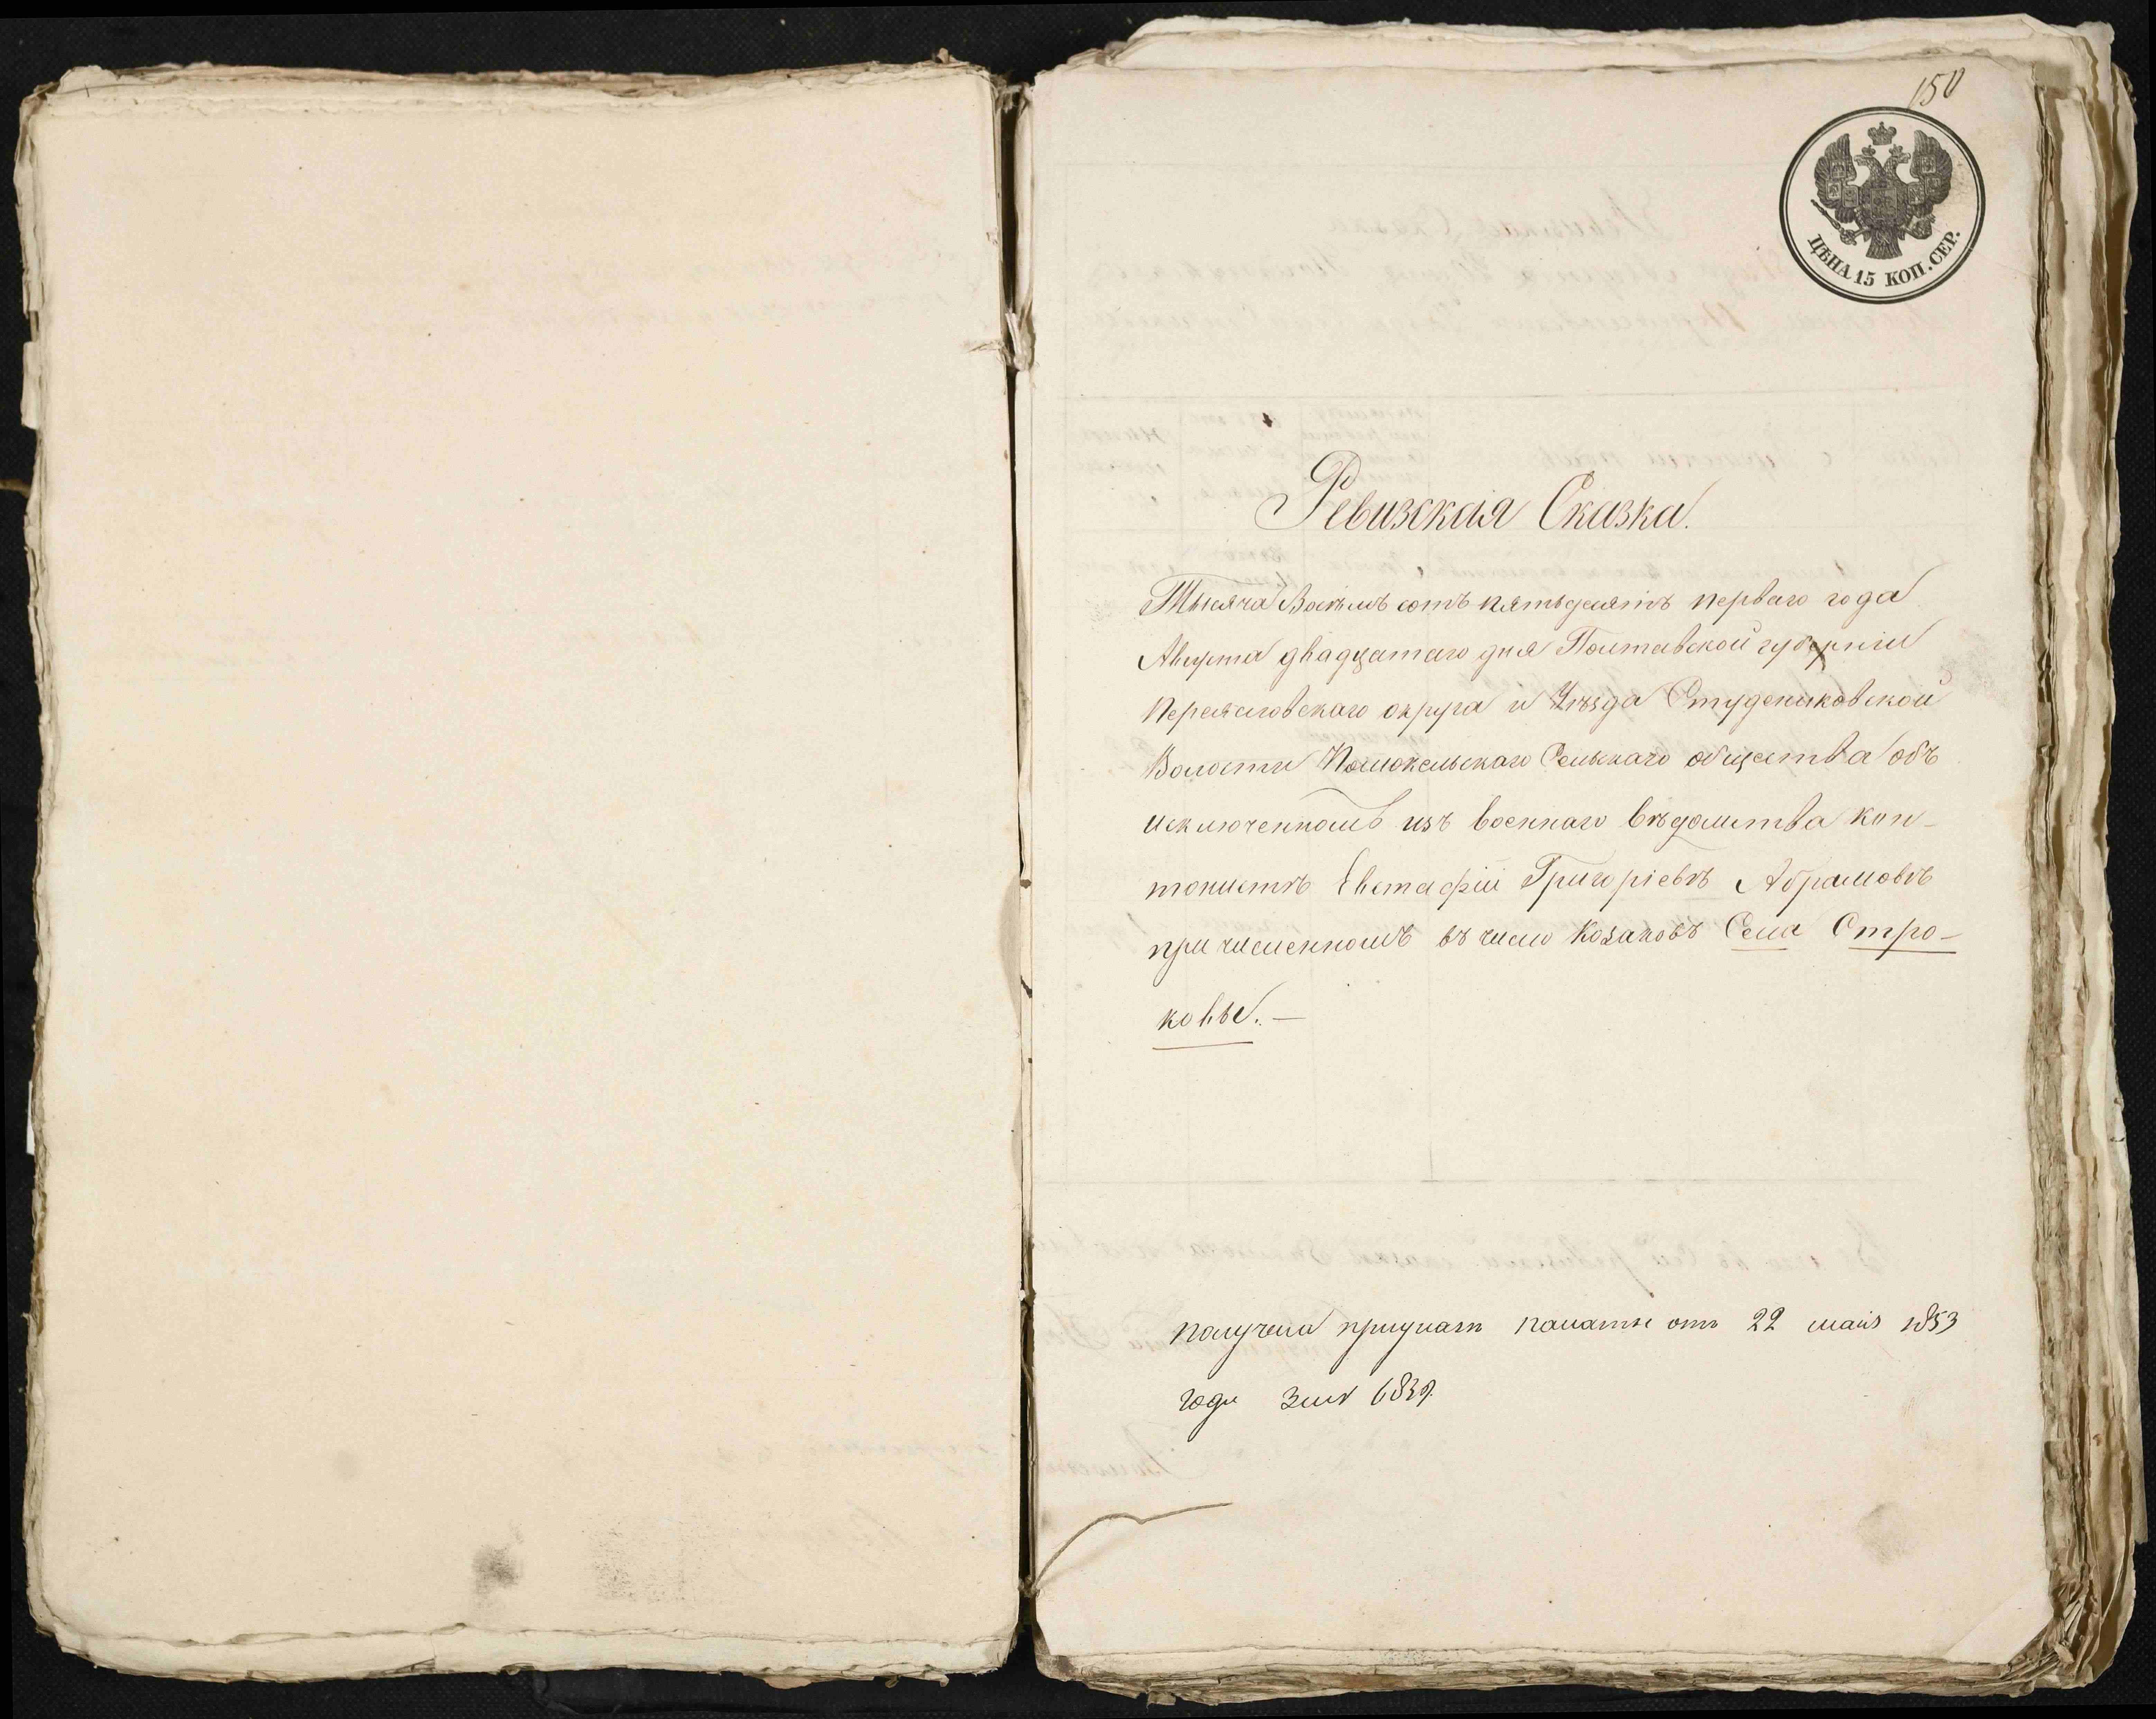 150
ЦѢНА 15 КОП. СЕР.
Ревизская Сказка.
Тысяча Восемь сотъ пятьдесятъ перваго года
Августа двадцатаго дня Полтавской губерніи
Переяславскаго округа и Уѣзда Студениковской
Волости Помокельскаго Сельскаго общества объ
исключенномъ изъ военнаго вѣдомства кон-
тонистѣ Евстафіи Григоріевѣ Абрамовѣ
причисленномъ въ число Козаковъ Села Стро-
ковы. —
получена приуказѣ палаты отъ 22 мая 1853
года за № 6839.